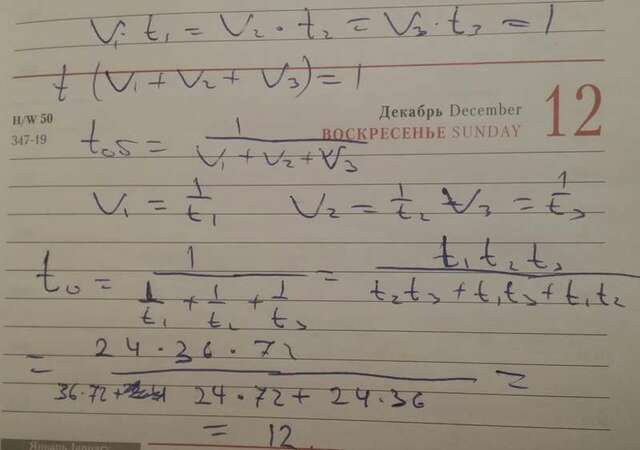 V₁·t₁ = V₂·t₂ = V₃·t₃ = 1
t (V₁ + V₂ + V₃) = 1
H/W 50
347-19
Декабрь December
ВОСКРЕСЕНЬЕ SUNDAY
12
t₀₅ = 1/(V₁ + V₂ + V₃)
V₁ = 1/t₁ V₂ = 1/t₂ V₃ = 1/t₃
t₀ = 1/(1/t₁ + 1/t₂ + 1/t₃) = t₁ t₂ t₃/(t₂t₃ + t₁t₃ + t₁t₂)
= 24·36·72/(36·72 + 24·72 + 24·36) =
= 12
Январь January